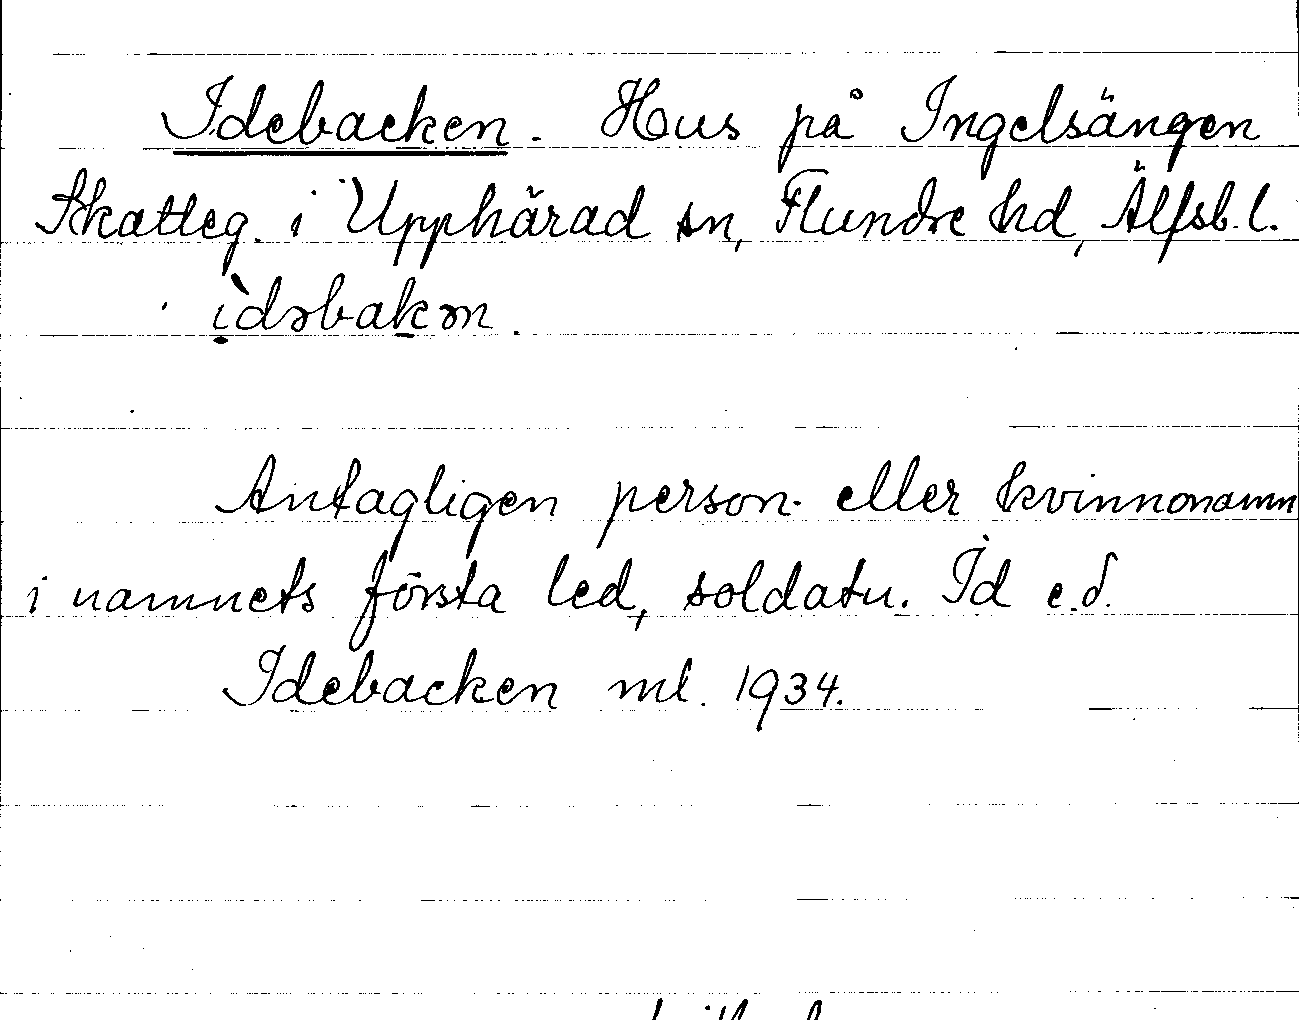 Idebacken. Hus på Ingelsängen
Skatteg. i Upphärad sn, Flundre hd, Älfsb. l.
ìdəbakən.
Antagligen person- eller kvinnonamn
i namnets första led, soldatn. Id e.d.
Idebacken ml. 1934.